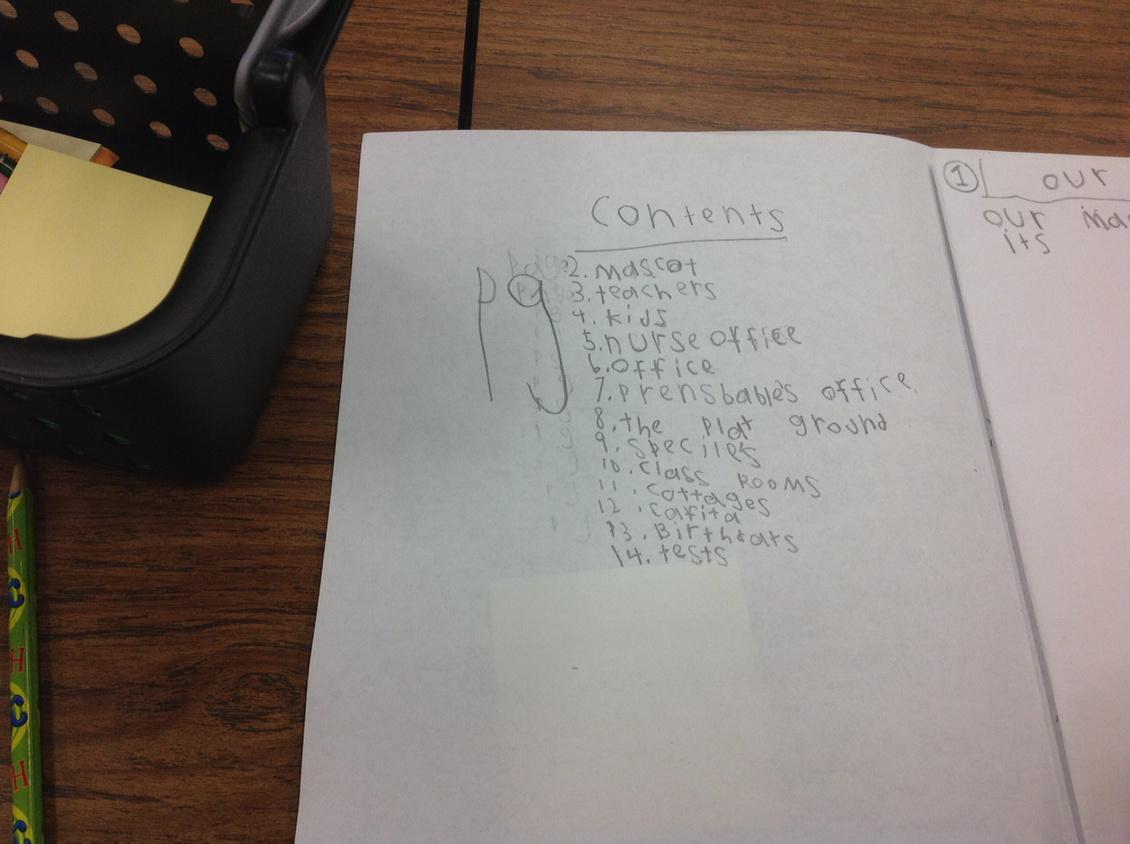 Contents
pg
2. mascot
3. teachers
4. kids
5. nurse office
6. office
7. prensbable's office
8. the plat ground
9. speciles
10. class rooms
11. cottages
12. cafita
13. Birthdats
14. tests
1 our
our mas
its